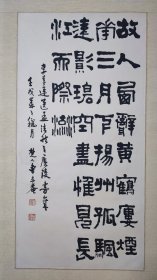 故人西辭黃鶴廔煙
華三月下揚州孤颿
遠影碧空盡惟見長
江天際流
送孟浩然之廣陵
壬戌